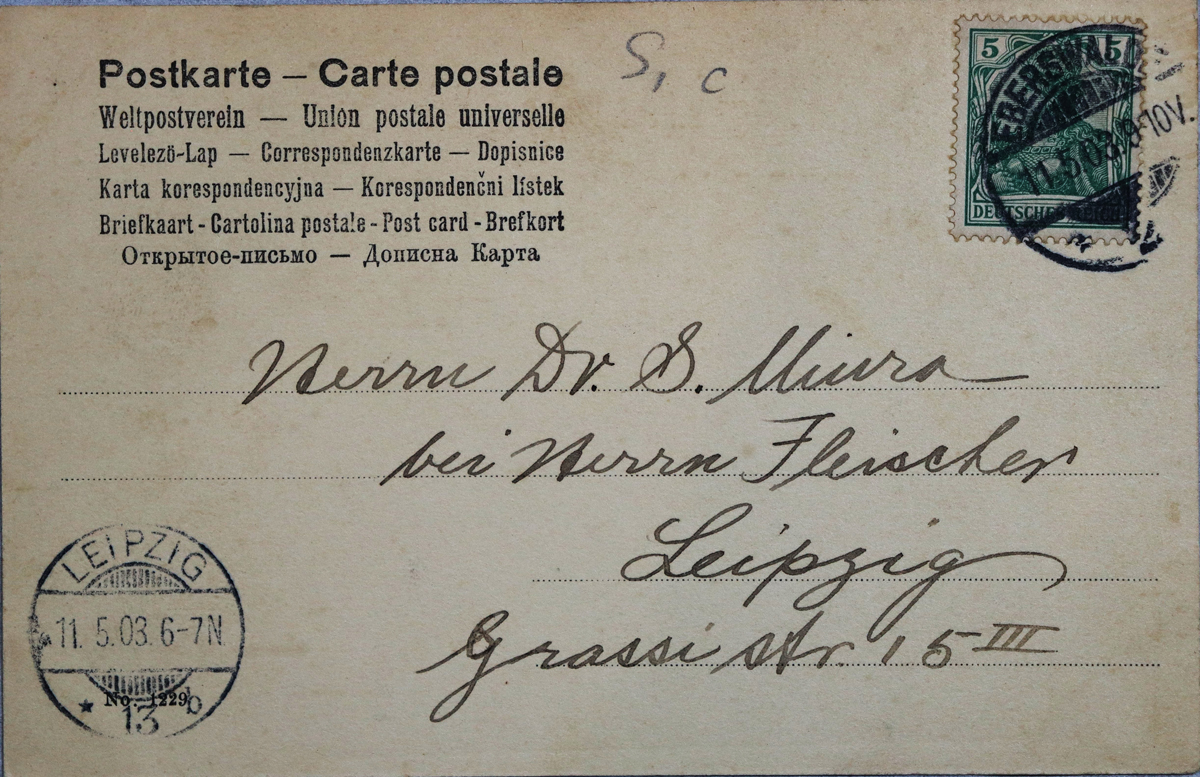 Postkarte – Carte postale
Weltpostverein — Union postale universelle
Levelezö-Lap — Correspondenzkarte — Dopisnice
Karta korespondencyjna — Korespondenčni lístek
Briefkaart - Cartolina postale - Post card - Brefkort
Открытое-письмо — Дописна Карта
S, c
5 5
DEUTSCHES REICH
EBERSWALDE
11.5.03.8-10V.
Herrn Dr. S. Miura
bei Herrn Fleischer
Leipzig
Grassi str. 15 III
LEIPZIG
11. 5.03. 6-7N.
No. 1229
13 b